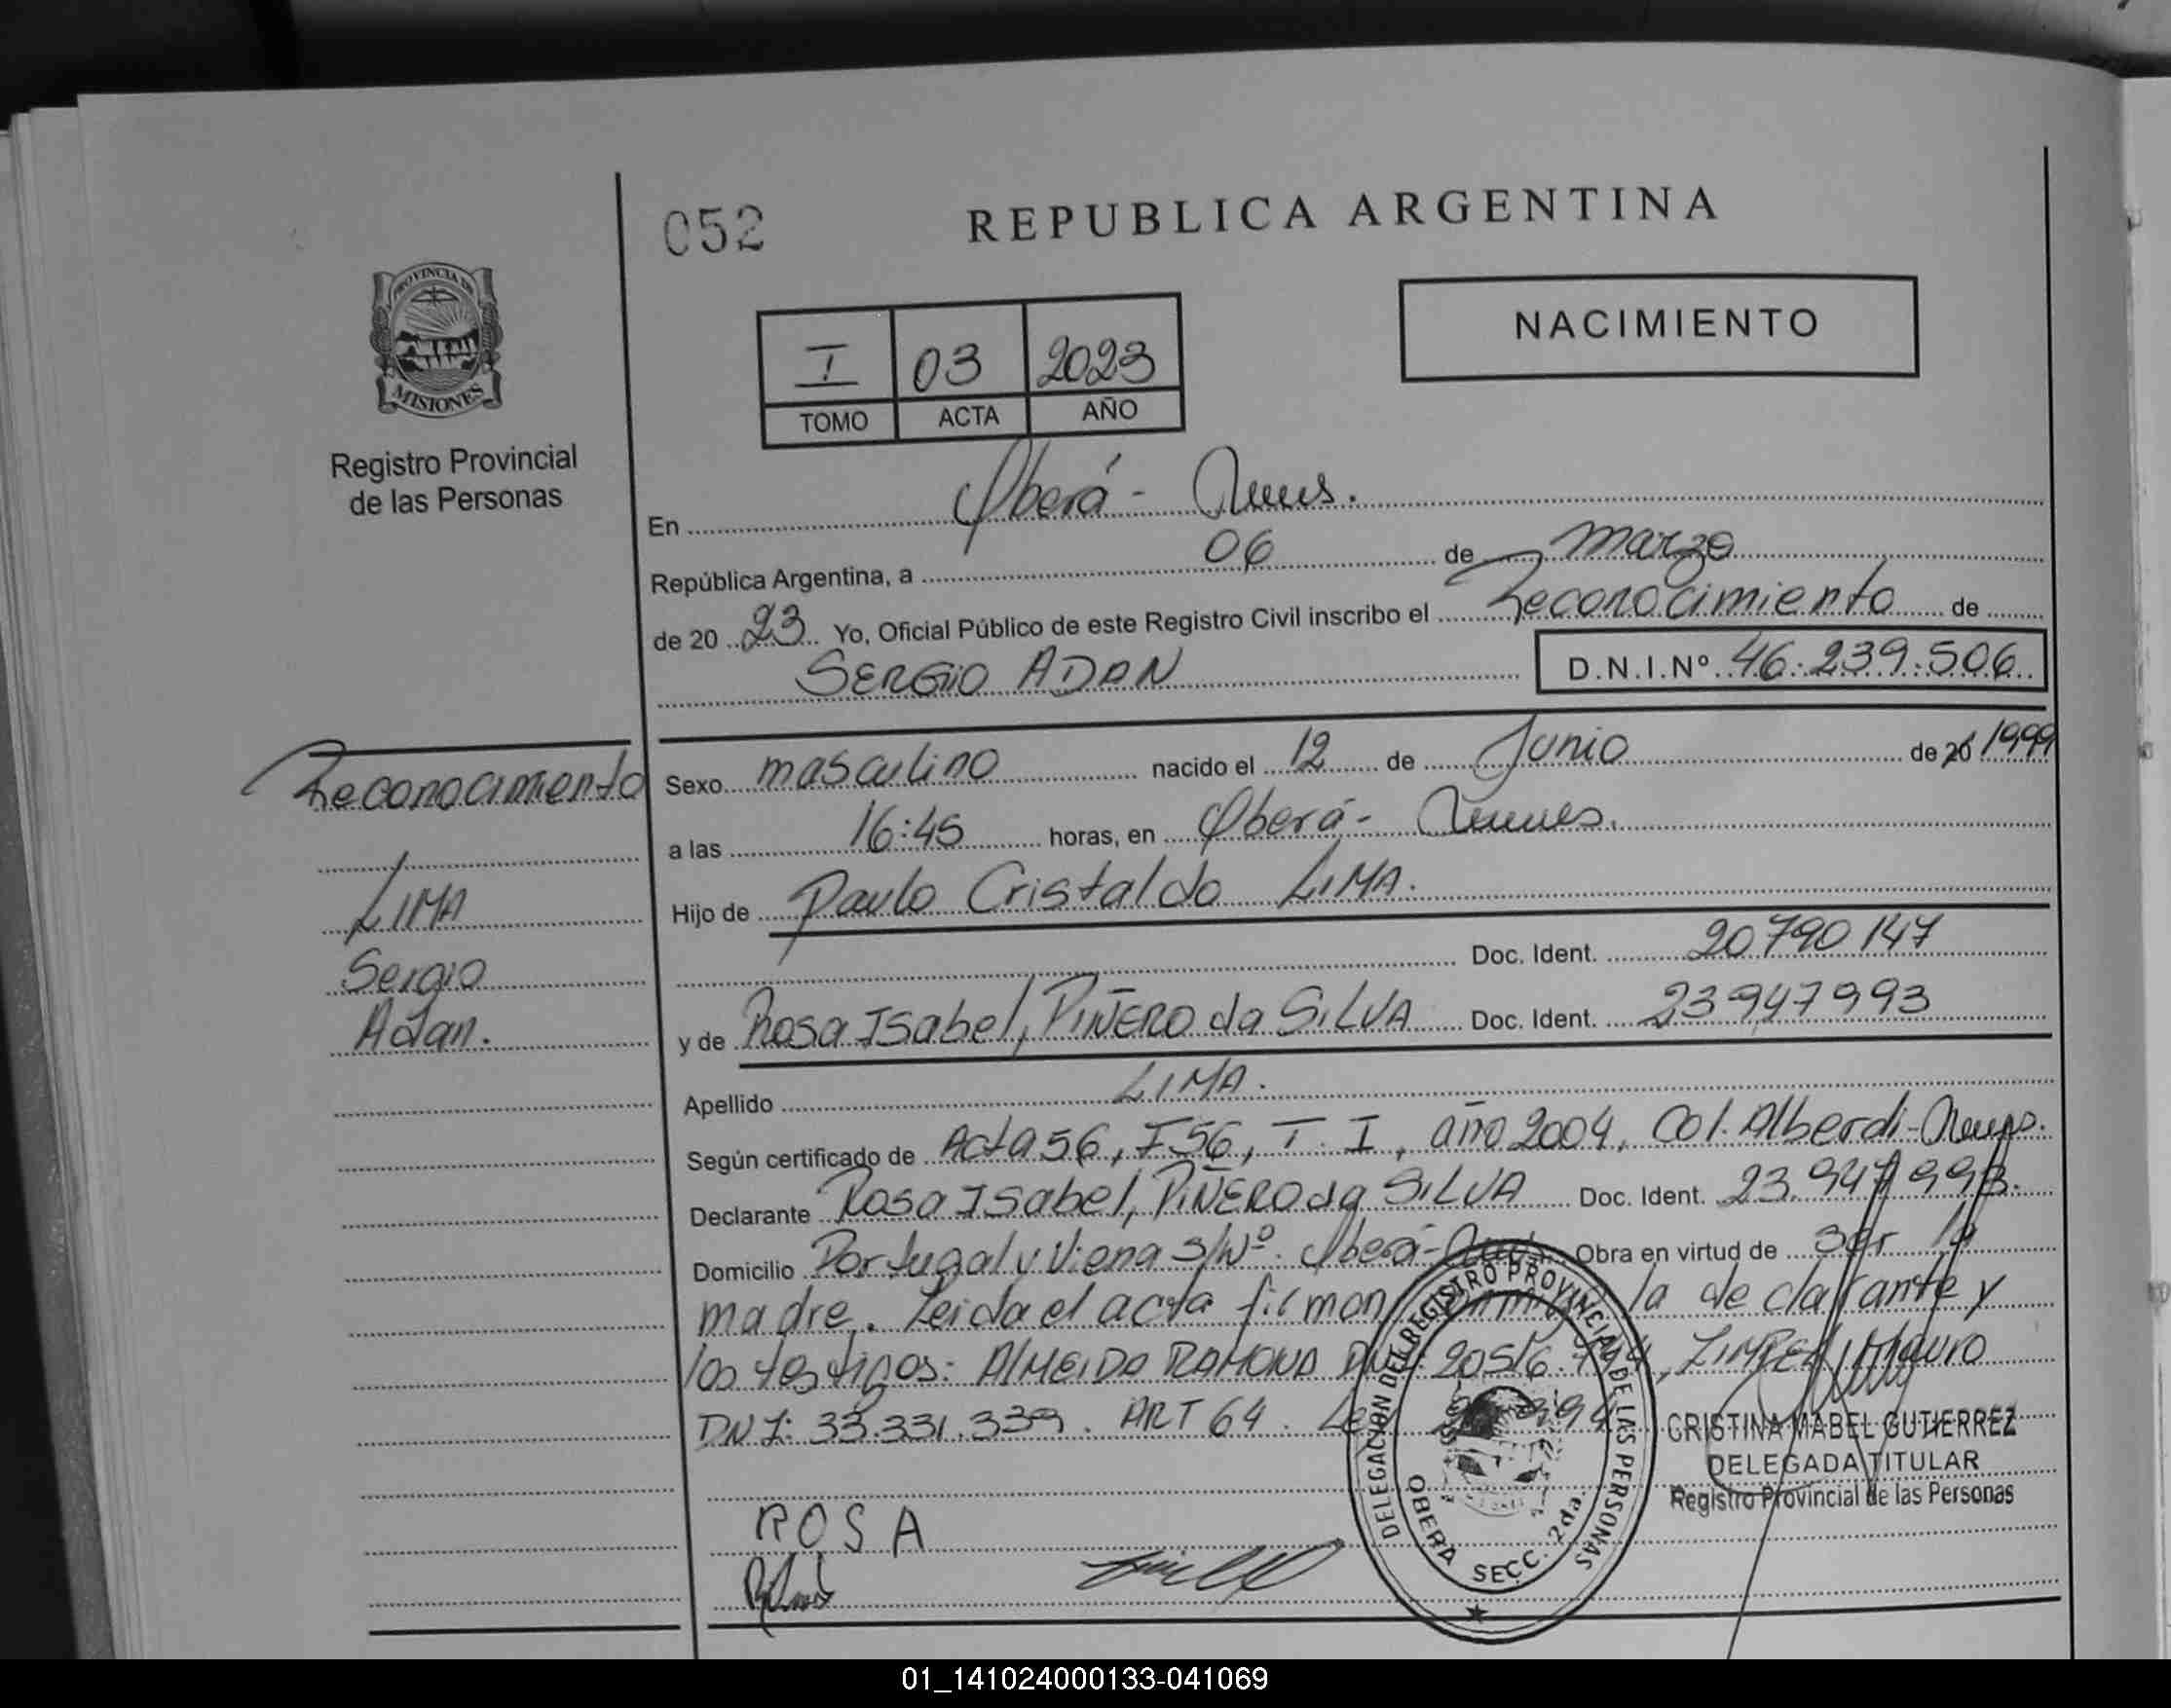 052
REPUBLICA ARGENTINA
NACIMIENTO
PROVINCIA DE
MISIONES
Registro Provincial
de las Personas
I 03 2023
TOMO ACTA AÑO
En Oberá-
República Argentina, a 06 de marzo
de 20 23 Yo, Oficial Público de este Registro Civil inscribo el Reconocimiento de
SERGIO ADAN D.N.I.Nº 46.239.506
Reconocimiento
LIMA
Sergio
Adan.
Sexo masculino nacido el 12 de Junio de 20 1999
a las 16:45 horas, en Oberá-
Hijo de Paulo Cristaldo LIMA.
Doc. Ident. 20790147
y de Rosa Isabel, PIÑERO da SILVA Doc. Ident. 23947993
Apellido LIMA.
Según certificado de Acta 56, F56, T. I, año 2004, Col. Alberdi-
Declarante Rosa Isabel, PIÑERO da SILVA Doc. Ident. 23.947993.
Domicilio Portugal y Viena S/Nº. Oberá- Obra en virtud de ser la
madre. Leida el acta firman la declarante y
los testigos: ALMEIDA RAMONA Mauro
DNI: 33.331.339. ART 64.
CRISTINA MABEL GUTIERREZ
DELEGADA TITULAR
Registro Provincial de las Personas
DELEGACION DEL REGISTRO PROVINCIAL DE LAS PERSONAS
OBERA SECC. 2da
ROSA
01_141024000133-041069